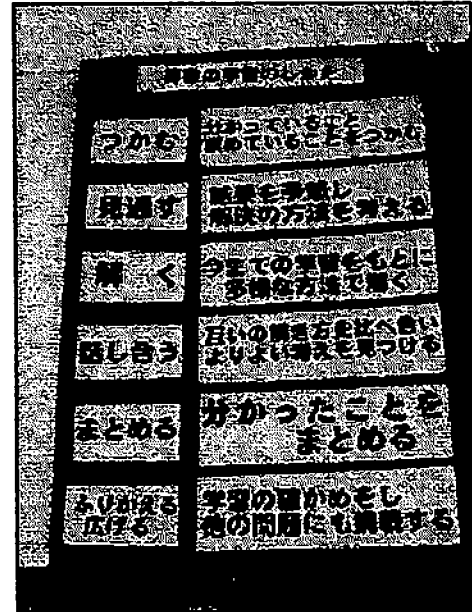 算数の学習のしかた
つかむ
分かっていること
求めていることをつかむ
見通す
結果を予想し
解決の方法を考える
解く
今までの学習をもとに
多様な方法で解く
話し合う
互いの考え方を比べ合い
よりよい考えを見つける
まとめる
分かったことを
まとめる
ふりかえる
広げる
学習の確かめをし
他の問題にも挑戦する